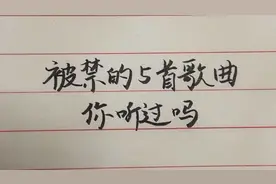 被禁的5首歌曲
你听过吗